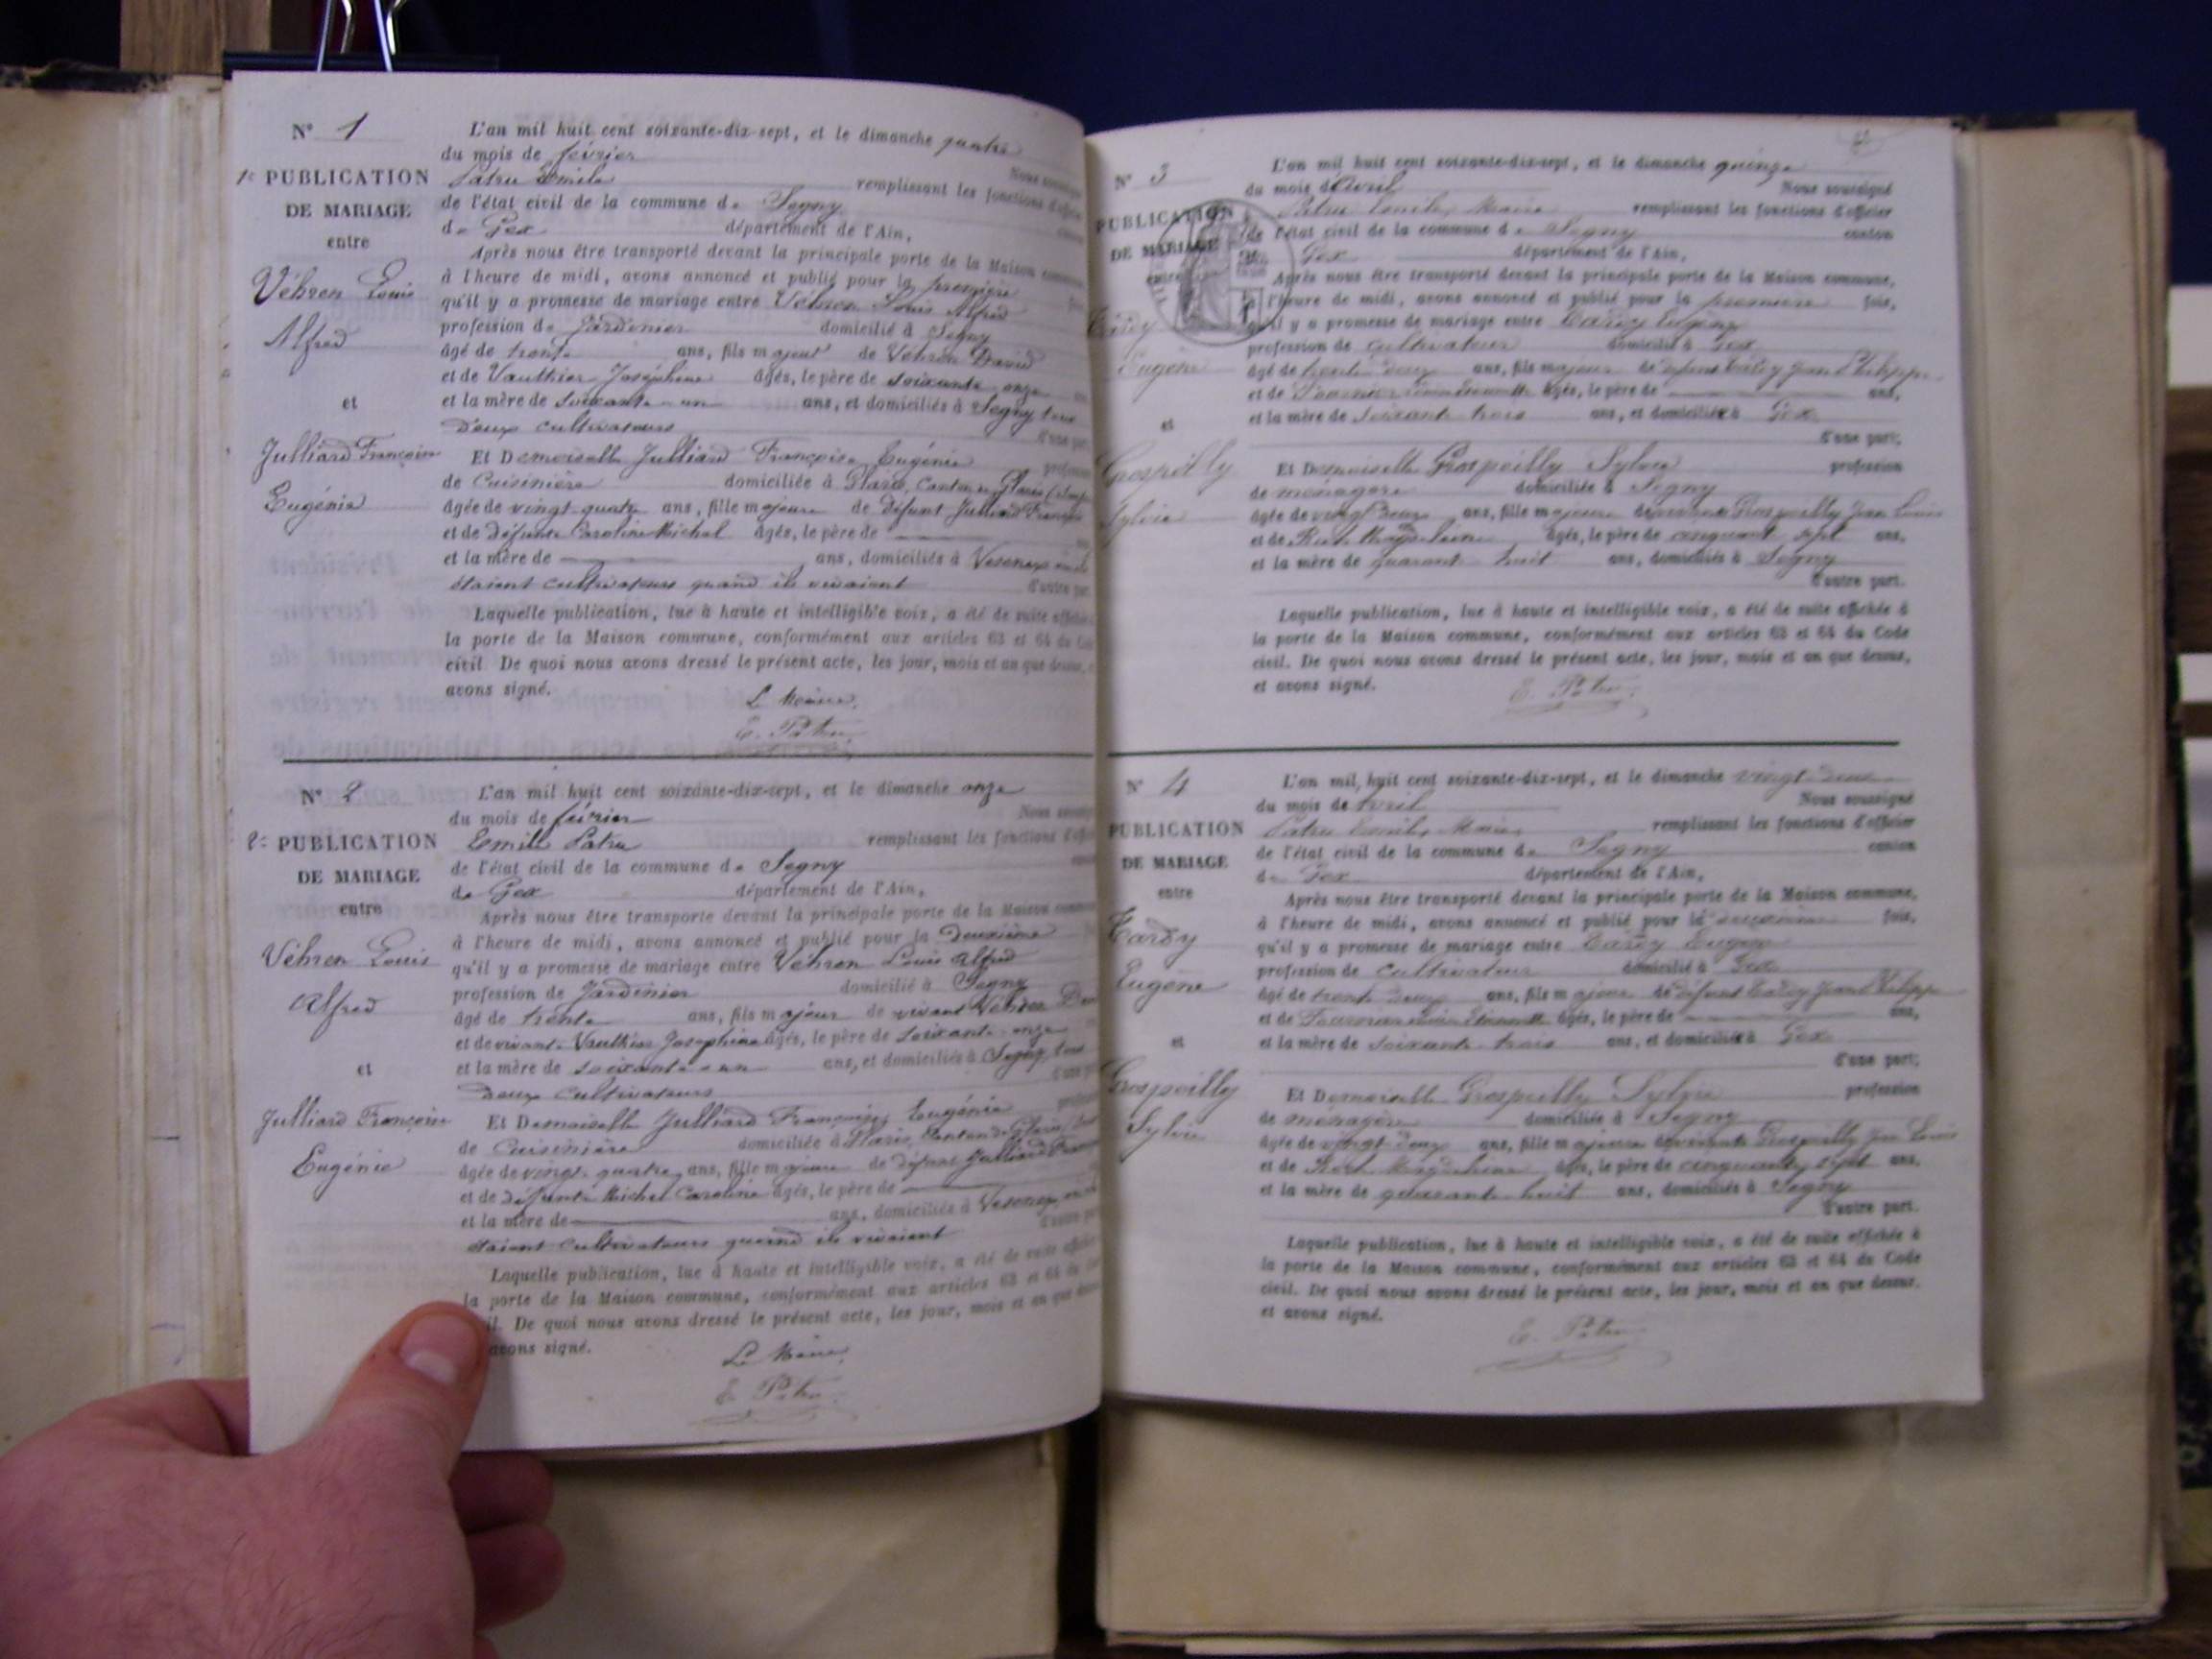 Nº 1
1e PUBLICATION
DE MARIAGE
entre
Vehren Louis
Alfred
et
Julliard Françoise
Eugénie
L'an mil huit cent soixante-dix-sept, et le dimanche quatre
du mois de février Nous soussigné
Patru Emile remplissant les fonctions d'officier
de l'état civil de la commune de Segny
de Gex département de l'Ain,
Après nous être transporté devant la principale porte de la Maison commune,
à l'heure de midi, avons annoncé et publié pour la première
qu'il y a promesse de mariage entre Vehren Louis Alfred
profession de Jardinier domicilié à Segny
âgé de trente ans, fils majeur de Vehren David
et de Vauthier Joséphine âgés, le père de soixante onze
et la mère de soixante-un ans, et domiciliés à Segny tous
deux cultivateurs d'une part
Et Demoiselle Julliard Françoise Eugénie profession
de Cuisinière domiciliée à Glaris, Canton de Glaris
âgée de vingt-quatre ans, fille majeure de défunt Julliard François
et de défunte Caroline Michel âgés, le père de
et la mère de ans, domiciliés à Vesenex
étaient cultivateurs quand ils vivaient d'autre part
Laquelle publication, lue à haute et intelligible voix, a été de suite affichée
la porte de la Maison commune, conformément aux articles 63 et 64 du Code
civil. De quoi nous avons dressé le présent acte, les jour, mois et an que dessus,
avons signé.
Le Maire,
E. Patru
Nº 2
2e PUBLICATION
DE MARIAGE
entre
Vehren Louis
Alfred
et
Julliard Françoise
Eugénie
L'an mil huit cent soixante-dix-sept, et le dimanche onze
du mois de février Nous
Emile Patru remplissant les fonctions d'officier
de l'état civil de la commune de Segny
de Gex département de l'Ain,
Après nous être transporté devant la principale porte de la Maison
à l'heure de midi, avons annoncé et publié pour la deuxième
qu'il y a promesse de mariage entre Vehren Louis Alfred
profession de Jardinier domicilié à Segny
âgé de trente ans, fils majeur de vivant Vehren
et de vivante Vauthier Josephine âgés, le père de soixante-onze
et la mère de soixante-un ans, et domiciliés à Segny, tous
deux cultivateurs d'une
Et Demoiselle Julliard Françoise Eugénie
de Cuisinière domiciliée à Glaris, Canton de Glaris
âgée de vingt-quatre ans, fille majeure de défunt Julliard
et de défunte Michel Caroline âgés, le père de
et la mère de ans, domiciliés à Vesenex
étaient cultivateurs quand ils vivaient
Laquelle publication, lue à haute et intelligible voix, a été de suite
la porte de la Maison commune, conformément aux articles 63 et 64
De quoi nous avons dressé le présent acte, les jour, mois et an que
avons signé.
Le Maire,
E. Patru
Nº 3
PUBLICATION
DE MARIAGE
entre
Tardy
Eugène
et
Grospeilly
Sylvie
L'an mil huit cent soixante-dix-sept, et le dimanche quinze
du mois d'Avril Nous soussigné
Patru Emile, Maire remplissant les fonctions d'officier
de l'état civil de la commune de Segny canton
de Gex département de l'Ain,
Après nous être transporté devant la principale porte de la Maison commune,
à l'heure de midi, avons annoncé et publié pour la première fois,
qu'il y a promesse de mariage entre Tardy Eugène
profession de cultivateur domicilié à Gex
âgé de trente deux ans, fils majeur de défunt Tardy Jean Philippe
et de Fournier âgés, le père de ans,
et la mère de soixante trois ans, et domiciliés à Gex
d'une part;
Et Demoiselle Grospeilly Sylvie profession
de ménagère domiciliée à Segny
âgée de vingt deux ans, fille majeure de Grospeilly Jean Louis
et de Magdeleine âgés, le père de cinquante sept ans,
et la mère de quarante huit ans, domiciliés à Segny
d'autre part.
Laquelle publication, lue à haute et intelligible voix, a été de suite affichée à
la porte de la Maison commune, conformément aux articles 63 et 64 du Code
civil. De quoi nous avons dressé le présent acte, les jour, mois et an que dessus,
et avons signé.
E. Patru
Nº 4
PUBLICATION
DE MARIAGE
entre
Tardy
Eugène
et
Grospeilly
Sylvie
L'an mil huit cent soixante-dix-sept, et le dimanche vingt deux
du mois de Avril Nous soussigné
Patru Emile, Maire remplissant les fonctions d'officier
de l'état civil de la commune de Segny canton
de Gex département de l'Ain,
Après nous être transporté devant la principale porte de la Maison commune,
à l'heure de midi, avons annoncé et publié pour la deuxième fois,
qu'il y a promesse de mariage entre Tardy Eugène
profession de cultivateur domicilié à Gex
âgé de trente deux ans, fils majeur de défunt Tardy Jean Philippe
et de Fournier âgés, le père de ans,
et la mère de soixante trois ans, et domiciliés à Gex
d'une part;
Et Demoiselle Grospeilly Sylvie profession
de ménagère domiciliée à Segny
âgée de vingt deux ans, fille majeure de Grospeilly Jean Louis
et de Magdeleine âgés, le père de cinquante sept ans,
et la mère de quarante huit ans, domiciliés à Segny
d'autre part.
Laquelle publication, lue à haute et intelligible voix, a été de suite affichée à
la porte de la Maison commune, conformément aux articles 63 et 64 du Code
civil. De quoi nous avons dressé le présent acte, les jour, mois et an que dessus.
et avons signé.
E. Patru